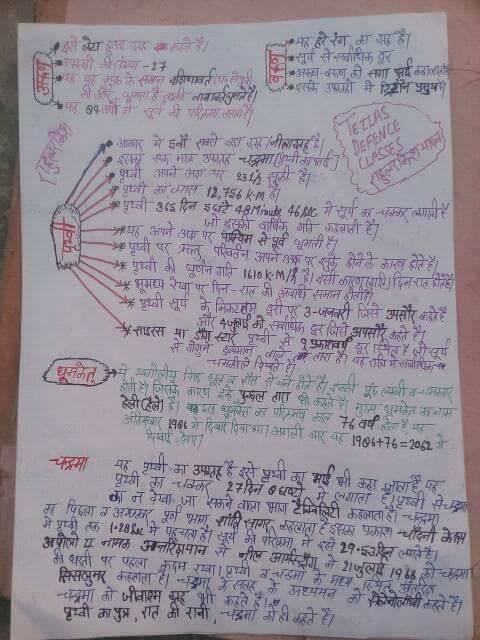 अरुण
इसे लेटा हुआ ग्रह कहते हैं।
उपग्रहों की संख्या - 27
यह ग्रह शुक्र के समान दक्षिणावर्त
यह 84 वर्षों में सूर्य की परिक्रमा करता है।
वरुण
यह हरे रंग का ग्रह है।
सूर्य से सर्वाधिक दूर
अरुण-वरुण को सगा भाई कहा जाता है
इसके उपग्रहों में
TETLAS
DEFENCE
CLASSES
पृथ्वी
आकार में 5वाँ सबसे बड़ा ग्रह/नीला ग्रह है।
इसका एक मात्र उपग्रह चन्द्रमा
पृथ्वी अपने अक्ष पर 23 1/2 झुकी है।
पृथ्वी का व्यास 12,756 K.M है।
पृथ्वी 365 दिन 5 घंटे 48 Minute 46 Sec में सूर्य का चक्कर लगाती है
जो इसकी वार्षिक गति कहलाती है।
यह अपने अक्ष पर पश्चिम से पूर्व घूमती है।
पृथ्वी पर ऋतु परिवर्तन अपने अक्ष पर झुके होने के कारण होते हैं।
पृथ्वी की घूर्णन गति 1610 K.M/h है। इसी कारण दिन रात होते हैं।
भूमध्य रेखा पर दिन-रात की अवधि समान होती है।
पृथ्वी सूर्य के निकटतम दूरी पर 3-जनवरी जिसे कहते हैं
और 4 जुलाई को सर्वाधिक दूर जिसे अपसौर कहते हैं।
साइरस या डॉग स्टार पृथ्वी से 9 प्रकाशवर्ष दूर स्थित है जो सूर्य
से दोगुने द्रव्यमान वाला तारा है।
धूमकेतु
ये खगोलीय पिण्ड धूल व गैस से बने होते हैं। इनकी पूँछ लम्बी व चमकदार
होती है। जिसके कारण इसे पुच्छल तारा भी कहते हैं। मुख्य धूमकेतु का नाम
हेली (हैले) है। इस धूमकेतु का परिक्रमण काल 76 वर्ष होता है यह
अंतिमबार 1986 में दिखाई दिया था। अगली बार यह 1986+76=2062 में
दिखाई देगा।
चन्द्रमा
यह पृथ्वी का उपग्रह है इसे पृथ्वी का भाई भी कहा जाता है यह
पृथ्वी का चक्कर 27 दिन 8 घण्टे में लगाता है। पृथ्वी से चन्द्रमा
का न देखा जा सकने वाला भाग कहलाता है। चन्द्रमा
का पिछला व अन्धकार पूर्ण भाग शान्ति सागर कहलाता है इसका प्रकाश
में पृथ्वी तक 1.28 Sec में पहुँचता है। सूर्य की परिक्रमा में इसे 29.53 दिन लगते हैं।
अपोलो II नामक अन्तरिक्षयान से नील आर्मस्ट्रांग ने 21 जुलाई को चन्द्रमा
की धरती पर पहला कदम रखा। पृथ्वी व चन्द्रमा के मध्य अंतरिक्ष
सिसलुनर कहलाता है। चन्द्रमा के सतह के अध्ययन को सेलेनोलॉजी कहते हैं।
चन्द्रमा को जीवाश्म ग्रह भी कहते हैं।
पृथ्वी का पुत्र, रात की रानी, चन्द्रमा को ही कहते हैं।